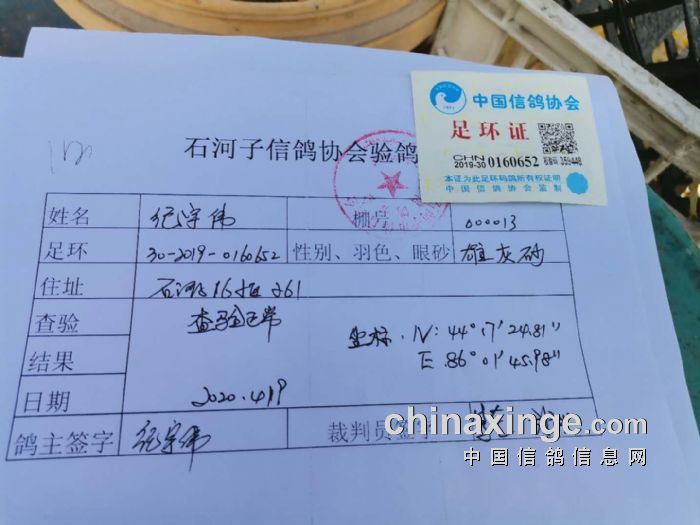 中国信鸽协会
足环证
CHN
2019-30 0160652
本证为此足环码鸽所有权证明
中国信鸽协会监制
石河子信鸽协会验鸽
姓名 纪宗伟 棚号 000013
足环 30-2019-0160652 性别、羽色、眼砂 雄灰砂
住址 石河子16 261
查验 查验正常 坐标. N: 44°17'24.81"
结果 E. 86°01'45.98"
日期 2020.4.19
鸽主签字 纪宗伟 裁判员签字
chinaxinge.com
中国信鸽信息网